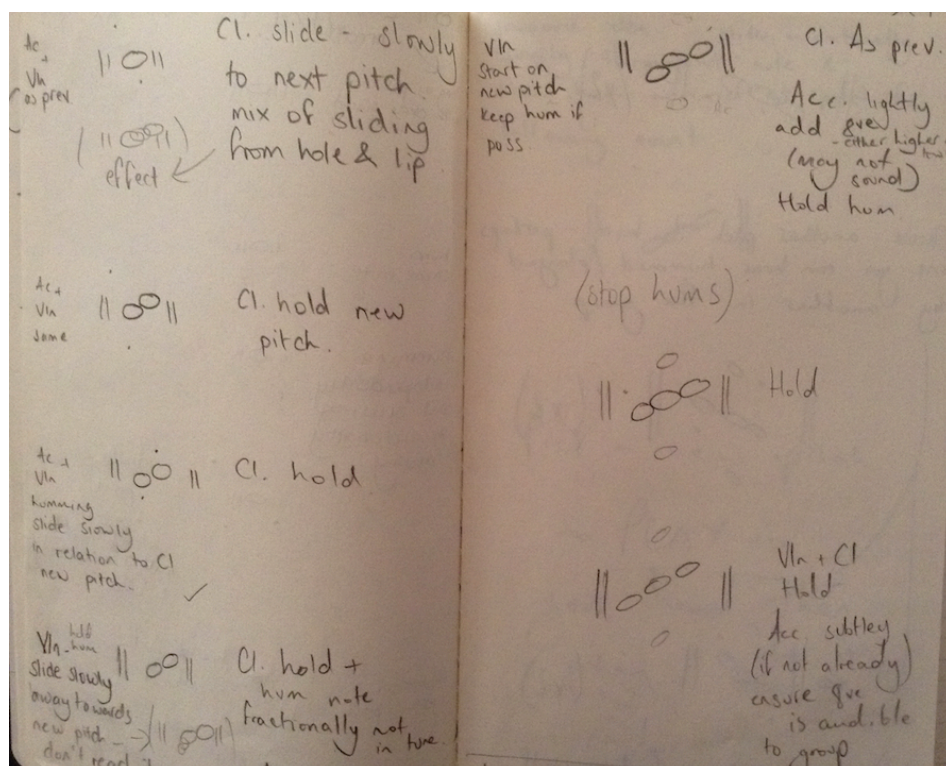 Ac +
Vln
as prev
Cl. slide - slowly
to next pitch.
mix of sliding
from hole & lip
effect
Ac +
Vln
same
Cl. hold new
pitch.
Ac +
Vln
humming
slide slowly
in relation to Cl
new pitch.
Cl. hold
Vln - hold
hum
slide slowly
away towards
new pitch -
don't
Cl. hold +
hum note
fractionally not
in tune.
Vln
start on
new pitch
keep hum if
poss
Cl. As prev.
Acc. lightly
add 8ve
- either higher
(may not
sound)
Hold hum
(stop hums)
Hold
Vln + Cl
Hold
Acc subtley
(if not already)
ensure 8ve
is audible
to group